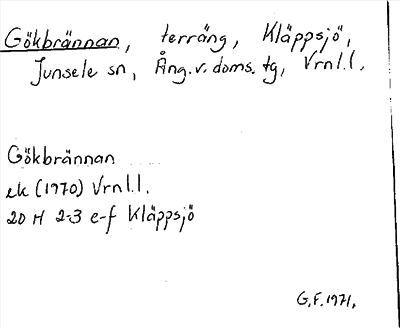 Gökbrännan, terräng, Kläppsjö,
Junsele sn, Ång.v.doms.tg, Vrnl.l.
Gökbrännan
ek (1970) Vrnl.l.
20 H 2-3 e-f Kläppsjö
G.F. 1971.